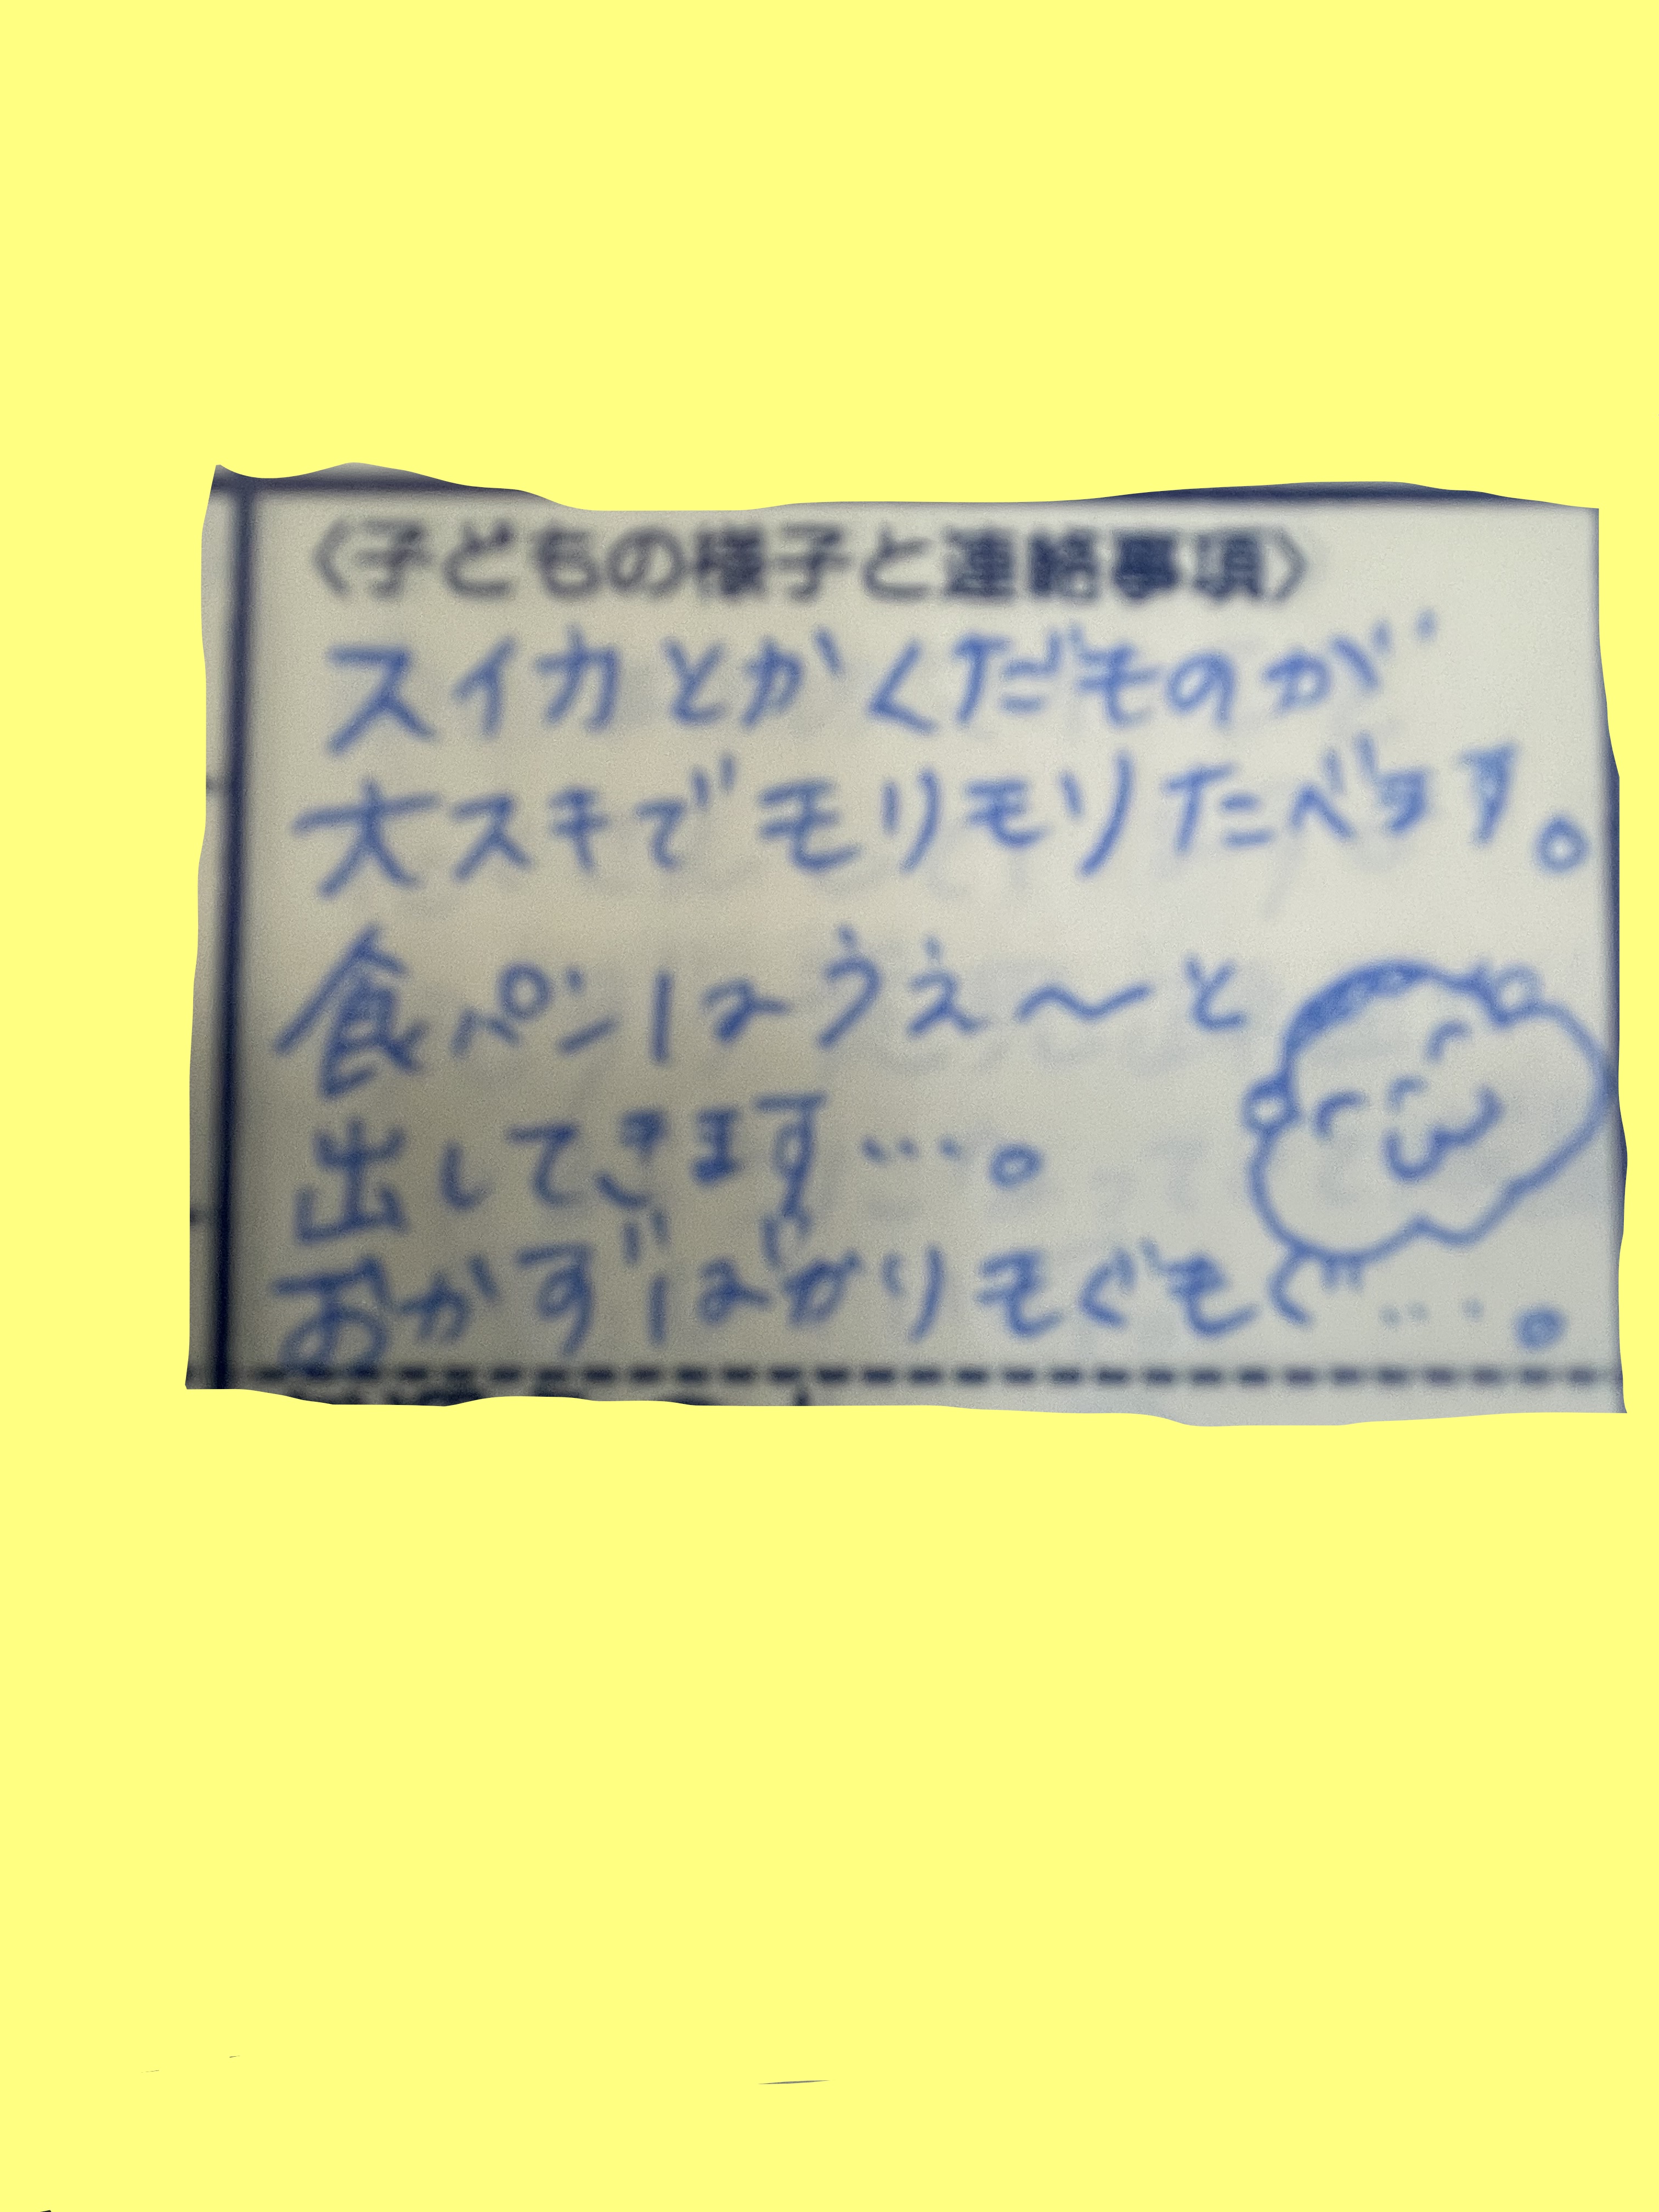 〈子どもの様子と連絡事項〉
スイカとかくだものが
大スキでモリモリたべます。
食パンはうえ〜と
出してきます…。
おかずばかりモぐモぐ…。